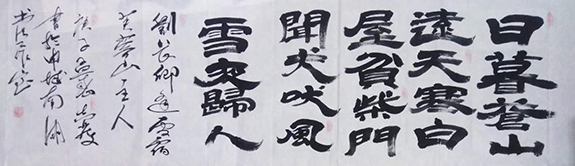 日暮蒼山
遠天寒白
屋貧柴門
聞犬吠風
雪夜歸人
劉長卿逢雪宿
芙蓉山主人
庚子孟
書於
南湖